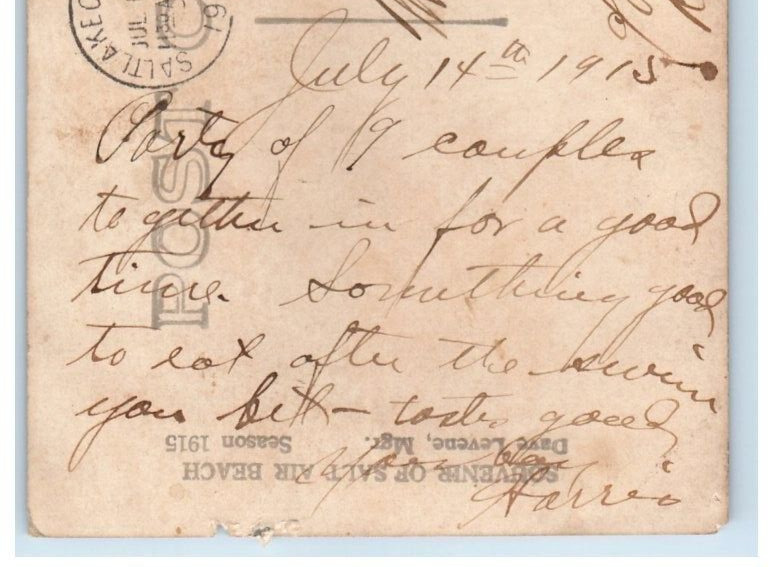 SALT LAKE C
JUL
19
POST C
July 14th 1915
Party of 9 couples
together in for a good
time. Something good
to eat after the swim
you bet - tastes good
Yours
Harris
SOUVENIR OF SALT AIR BEACH
Dave Levene, Mgr. Season 1915